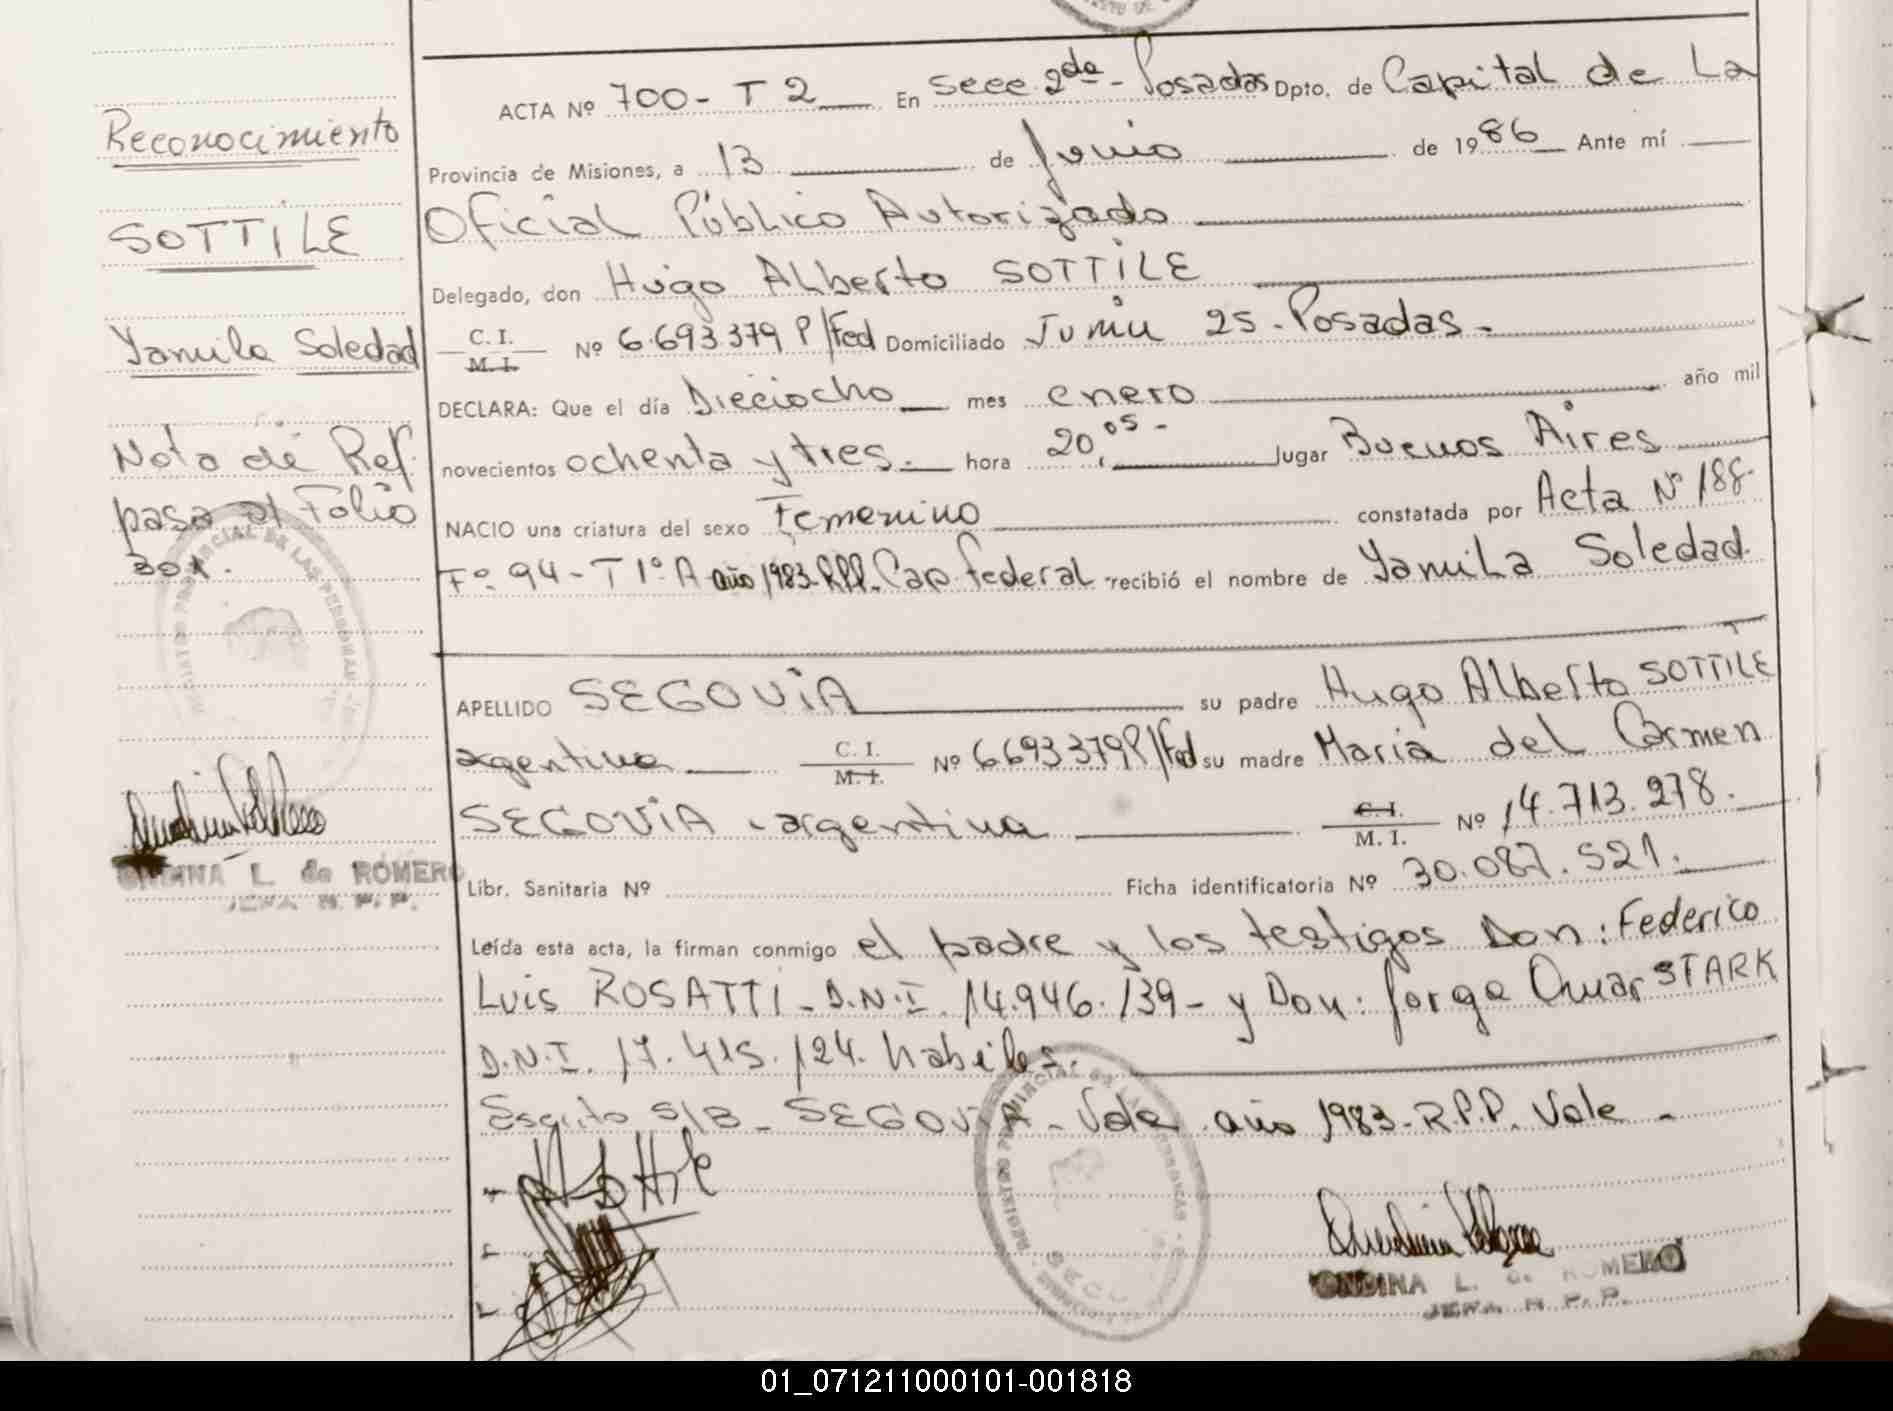 Reconocimiento
SOTTILE
Yamila Soledad
Nota de Ref.
pasa al Folio
301.
REGISTRO PROVINCIAL DE LAS PERSONAS
ONDINA L. de ROMERO
JEFA R. P. P.
ACTA Nº 700- T 2 En Secc 2da - Posadas Dpto. de Capital de La
Provincia de Misiones, a 13 de Junio de 1986 Ante mí
Oficial Público Autorizado
Delegado, don Hugo Alberto SOTTILE
C. I.
M. I. Nº 6.693.379 P/Fed Domiciliado Junin 25 - Posadas -
DECLARA: Que el día Dieciocho mes enero año mil
novecientos ochenta y tres.- hora 20,05 - lugar Buenos Aires
NACIO una criatura del sexo Femenino constatada por Acta Nº 188-
Fº 94 - T 1º A año 1983-RPP. Cap. Federal recibió el nombre de Yamila Soledad.
APELLIDO SEGOVIA su padre Hugo Alberto SOTTILE
argentino C. I.
M. I. Nº 6693379P/Fed su madre María del Carmen
SEGOVIA - argentina C. I.
M. I. Nº 14.713.278.
Libr. Sanitaria Nº Ficha identificatoria Nº 30.087.521.
Leída esta acta, la firman conmigo el padre y los testigos Don: Federico
Luis ROSATTI - D.N.I. 14.946.139 - y Don: Jorge Omar STARK
D.N.I. 17.415.124. habiles.
Escrito S/B - SEGOVIA - Vale año 1983- R.P.P. Vale -
REGISTRO PROVINCIAL DE LAS PERSONAS
ONDINA L. de ROMERO
JEFA R. P. P.
01_071211000101-001818